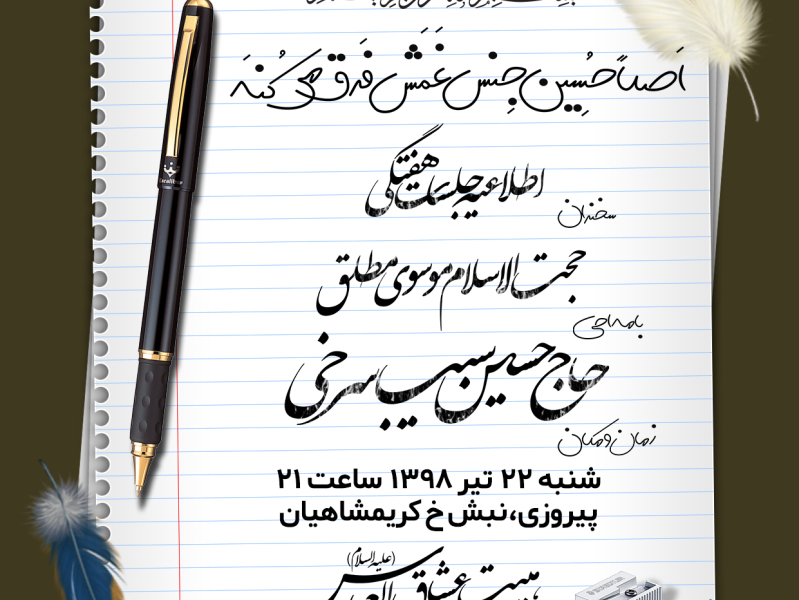 اَصلاً حُسین جِنس غَمَش فَرق می کُنَد
اطلاعیه جلسات هفتگی
سخنران
حجت الاسلام موسوی مطلق
بامداحی
حاج حسین سیب سرخی
زمان و مکان
شنبه ۲۲ تیر ۱۳۹۸ ساعت ۲۱
پیروزی،نبش خ کریمشاهیان
(علیه السلام)
هیئت عشاق العباس